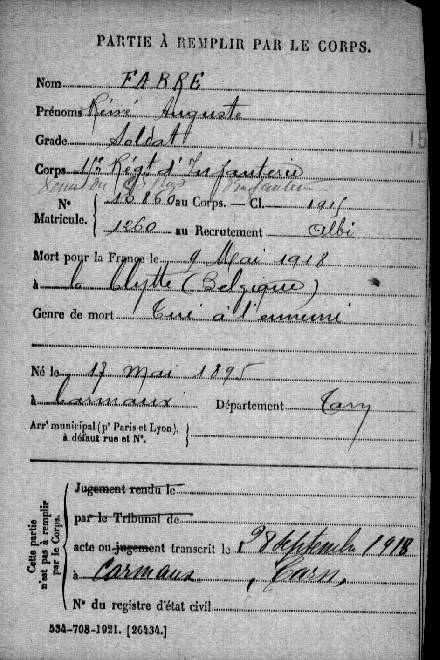 PARTIE À REMPLIR PAR LE CORPS.
Nom FABRE
Prénoms René Auguste
Grade Soldat
15
Corps Régt d'Infanterie
N° Matricule. { 13860 au Corps. — Cl. 1915
1260 au Recrutement Albi
Mort pour la France le 9 Mai 1918
à la Clytte (Belgique)
Genre de mort Tué à l'ennemi
Né le 17 mai 1895
à Carmaux Département Tarn
Arr¹ municipal (p¹ Paris et Lyon), à défaut rue et N°. {
Cette partie n'est pas à remplir par le Corps.
Jugement rendu le
par le Tribunal de
acte ou jugement transcrit le 28 septembre 1918
à Carmaux, Tarn,
N° du registre d'état civil
534-708-1921. [26434.]